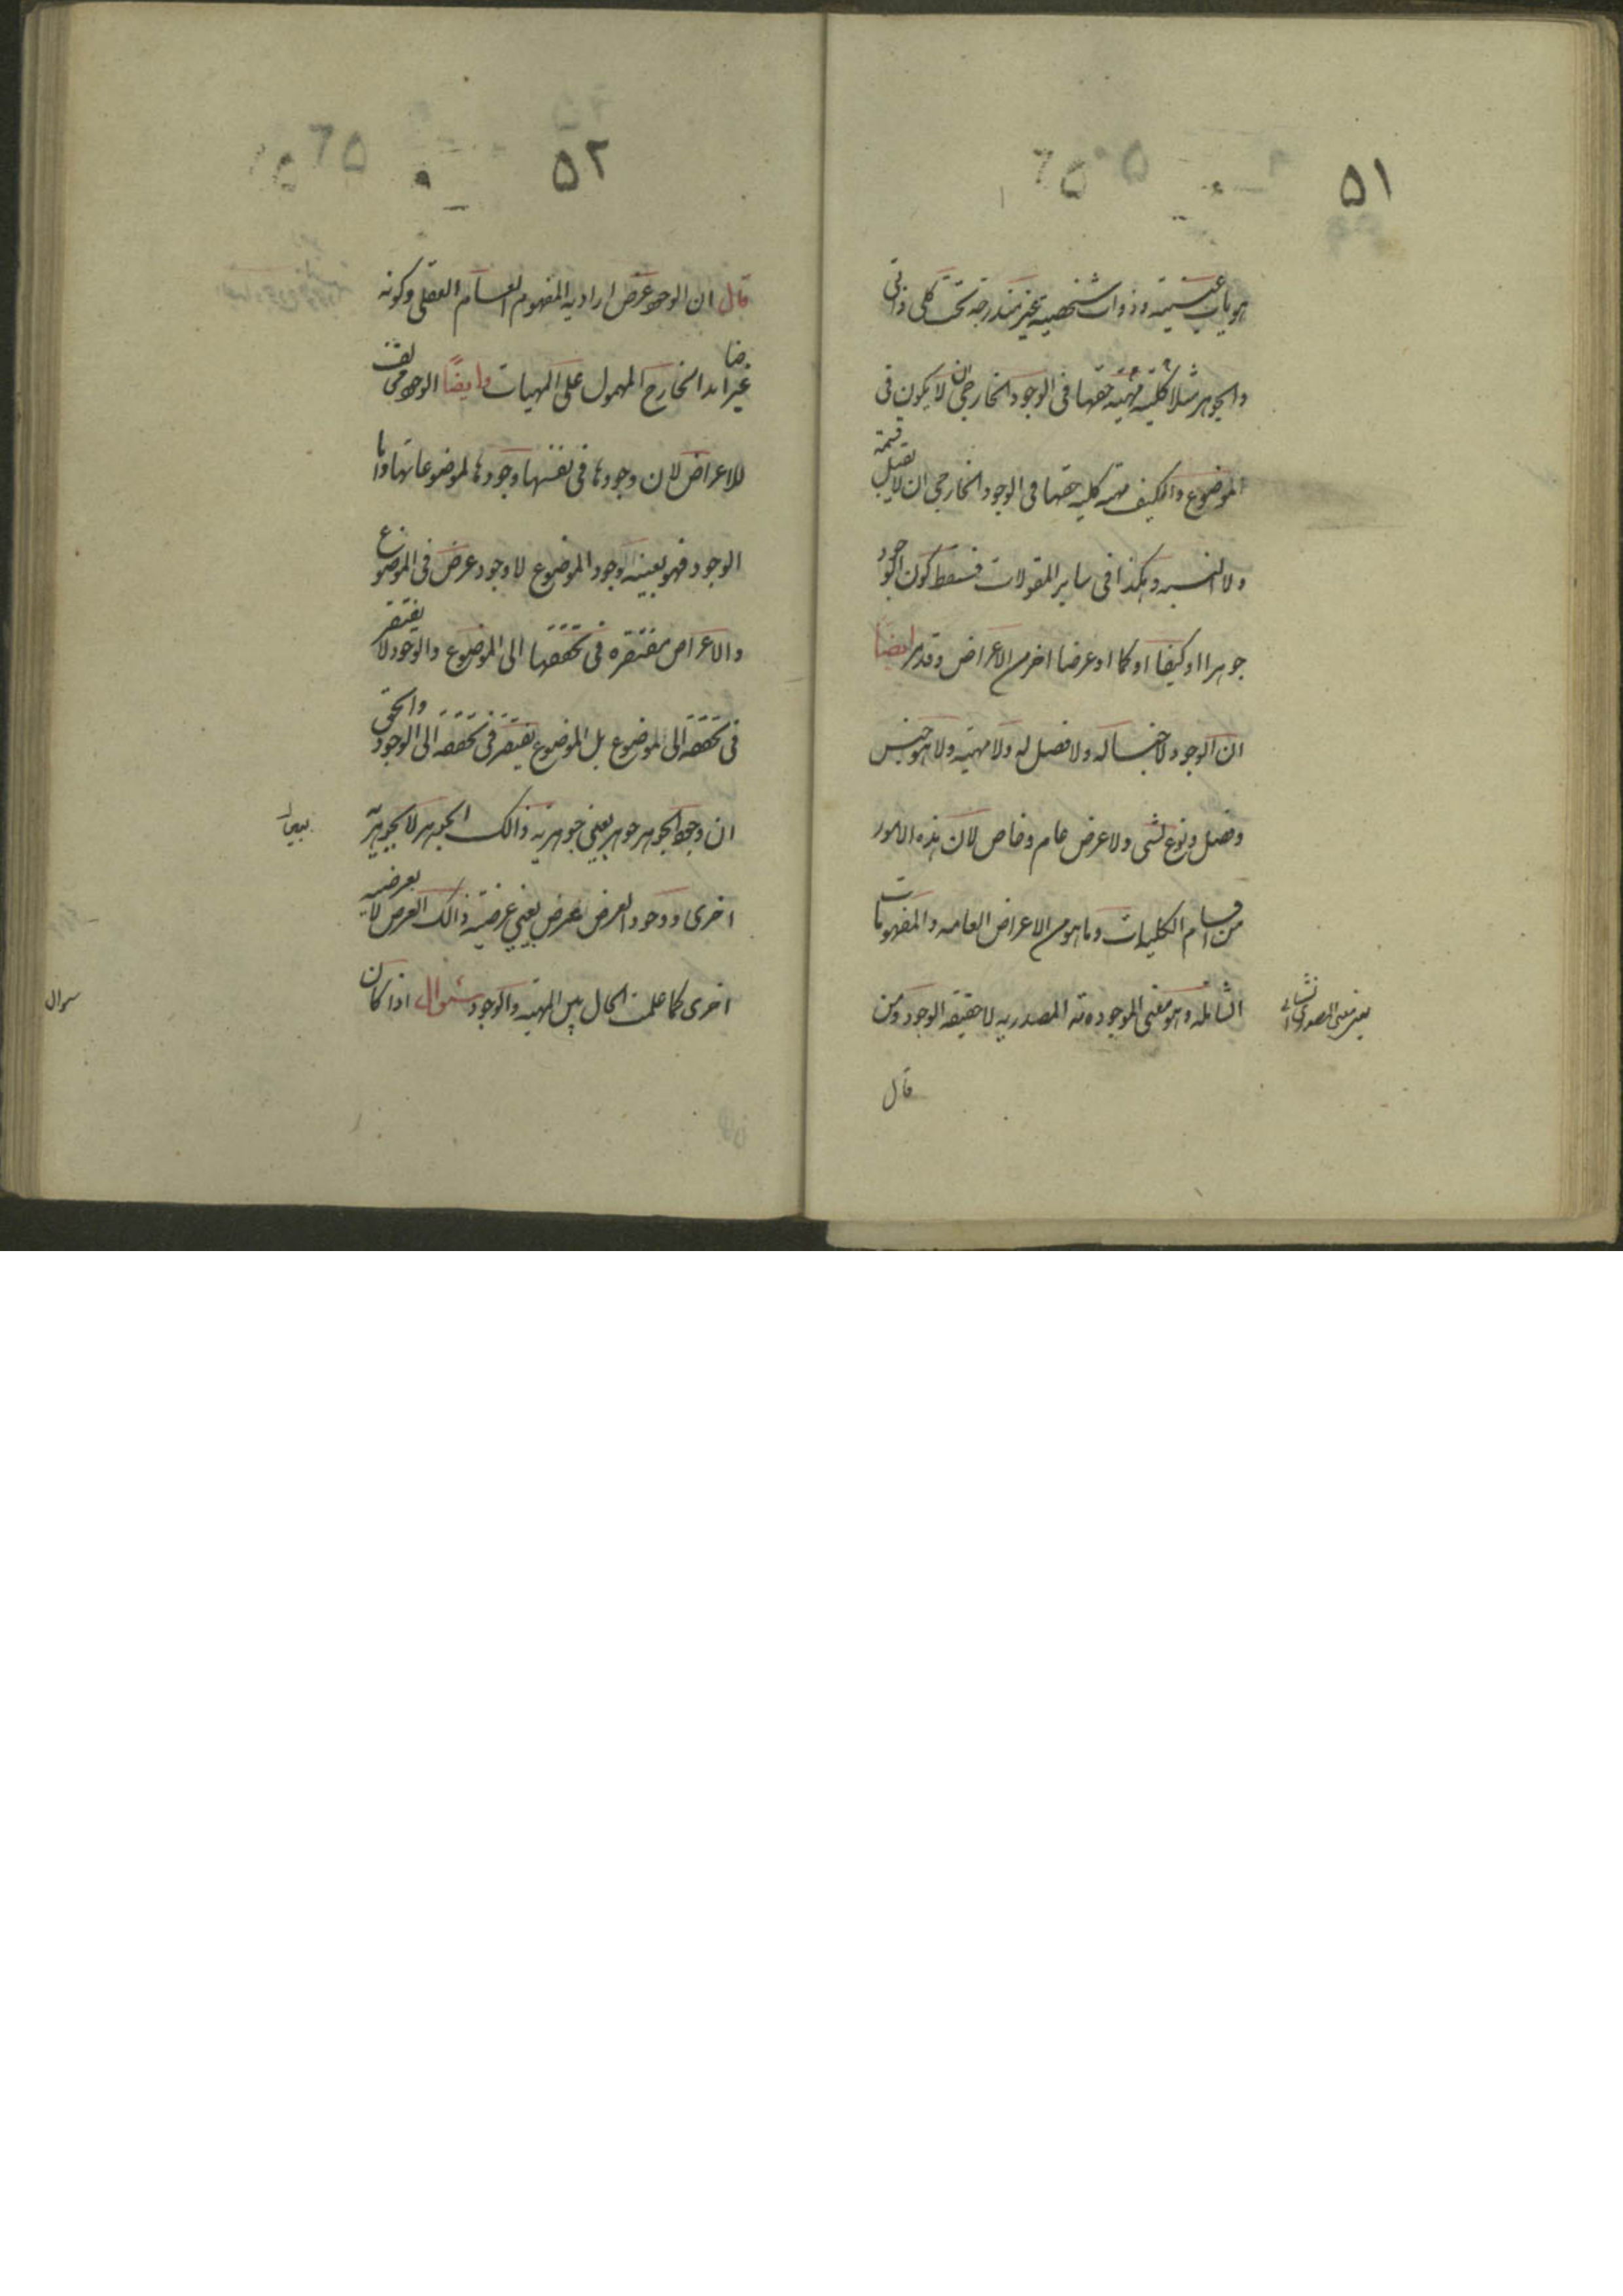 ۵۱
هويات عينيته وذوات شخصية غير مندرجة تحت كلى ذاتى
والجوهر مثلا كلية مهية حقها فى الوجود الخارجى ان لا يكون فى
الموضوع والكيف مهية كلية حقها فى الوجود الخارجى ان لا يقبل قسمة
ولا النسبه وهكذا فى ساير المقولات فسقط كون الوجود
جوهرا او كيفا او كما او عرضا اخر من الاعراض وقد مر ايضا
ان الوجود لا جنسا له ولا فصل له ولا مهية ولا هو جنس
وفصل ونوع لشى ولا عرض عام وخاص لان هذه الامور
من اقسام الكليات وما هو من الاعراض العامه والمفهومات
الشامله وهو معنى الموجوديته المصدريه لا حقيقة الوجود ومن
قال
۵۲
قال ان الوجود عرض اراد به المفهوم العام العقلى وكونه
عرضا انه الخارج المحمول على المهيات وايضا الوجود مخالف
للاعراض لان وجودها فى نفسها وجودها لموضوعاتها واما
الوجود فهو بعينه وجود الموضوع لا وجود عرض فى الموضوع
والاعراض مفتقره فى تحققها الى الموضوع والوجود لا يفتقر
فى تحققه الى الموضوع بل الموضوع يفتقر فى تحققه الى الوجود والحق
ان وجود الجوهر جوهر بعينى جوهريه ذالك الجوهر لا بجوهرية
اخرى ووجود العرض عرض بعينى عرضية ذالك العرض لا بعرضيه
اخرى كما علمت الحال بين المهيه والوجود سئوال اذا كان
سوال